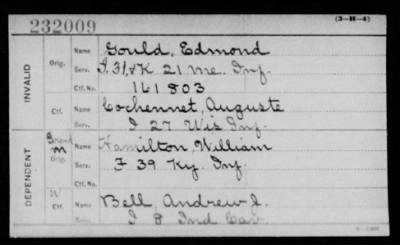 232009
(3-H-4)
INVALID
Orig. Name Gould, Edmond
Serv. I. 31, & K 21 Me. Inf.
Ctf. No. 161803
Ctf. Name Cochennet, Auguste
Serv. I 27 Wis Inf.
DEPENDENT
Orig. Name Hamilton, William
Serv. F 39 Ky. Inf.
Ctf. No.
W
Ctf. Name Bell, Andrew J.
Serv. I 8 Ind Cav.